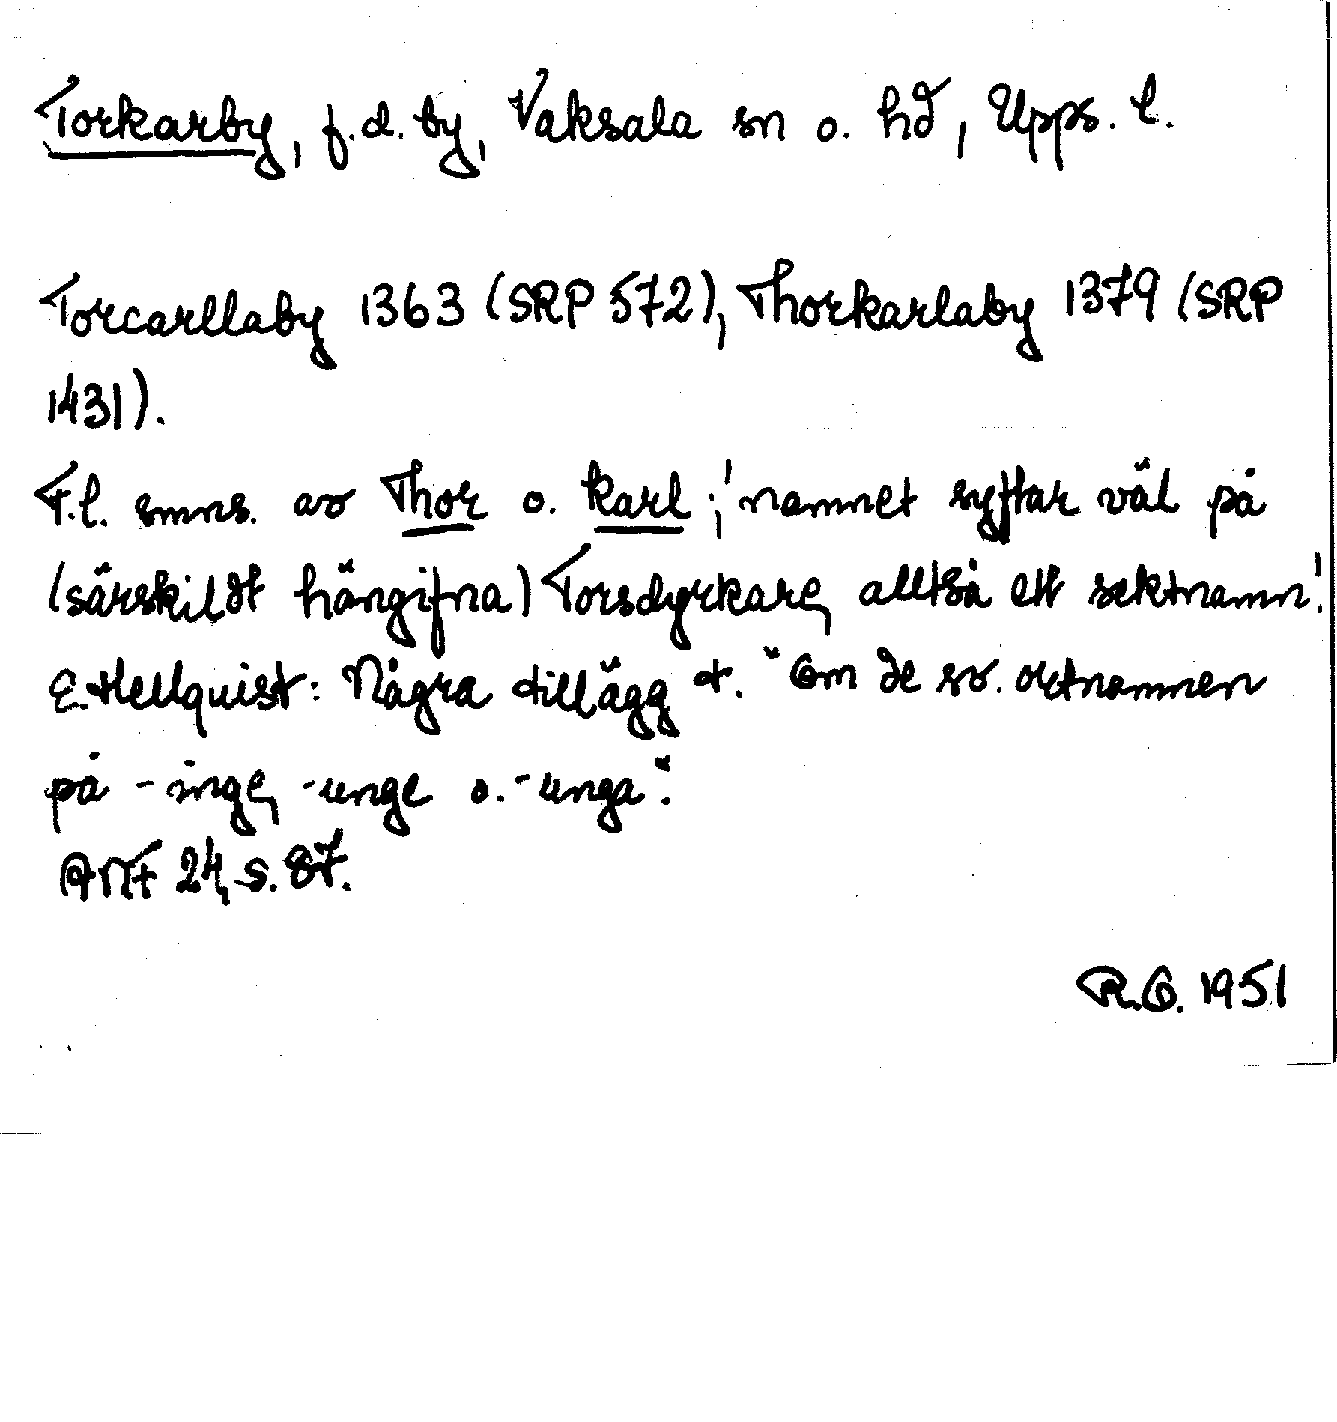 Torkarby, f.d. by, Vaksala sn o. hd, Upps. l.
Torcarllaby 1363 (SRP 572), Thorkarlaby 1379 (SRP
1431).
F.l. smns. av Thor o. karl; 'namnet syftar väl på
(särskildt hängifna) Torsdyrkare, alltså ett sektnamn'.
E. Hellquist: Några tillägg t. "Om de sv. ortnamnen
på -inge, -unge o. -unga".
ANF 24, s. 87.
R.O. 1951